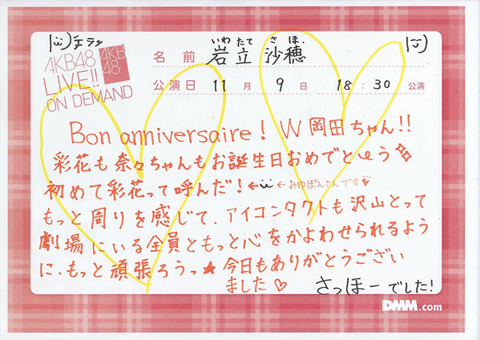 |ü)チラッ
AKB48
LIVE!!
ON DEMAND
AKB
48
いわ たて さ ほ
名前 岩立 沙穂
公演日 11 月 9 日 18:30 公演
Bon anniversaire! W岡田ちゃん!!
彩花も奈々ちゃんもお誕生日おめでとーう
初めて彩花って呼んだ!←ü ←みゆぽんさんです♡
もっと周りを感じて、アイコンタクトも沢山とって
劇場にいる全員ともっと心をかよわせられるよう
に、もっと頑張ろうっ★ 今日もありがとうござい
ました♡
さっほーでした!
DMM.com